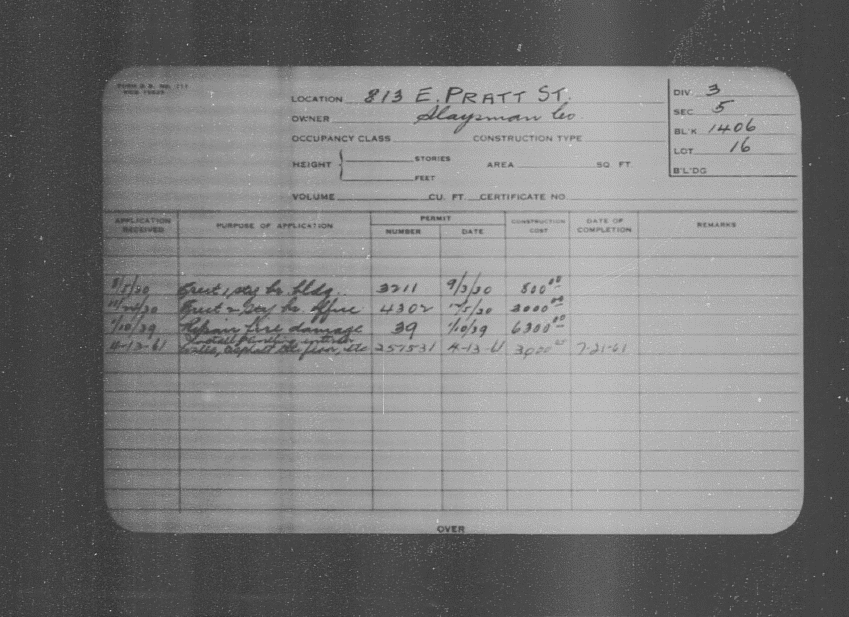 FORM B.B. NO. 
LOCATION 813 E. PRATT ST.
OWNER Slaysman Co
OCCUPANCY CLASS CONSTRUCTION TYPE
HEIGHT STORIES AREA SQ. FT.
FEET
VOLUME CU. FT. CERTIFICATE NO.
DIV. 3
SEC 5
BL'K 1406
LOT 16
B'L'DG
APPLICATION RECEIVED PURPOSE OF APPLICATION PERMIT NUMBER DATE CONSTRUCTION COST DATE OF COMPLETION REMARKS
Erect 1 sty br. bldg. 3211 9/3/30 800.00
Erect 2 sty br. office 4302 3000.00
1/10/39 Repair fire damage 39 1/10/39 6300.00
4-13-61 walls, asphalt tile floor, etc 257531 4-13-61 3000 7-21-61
OVER